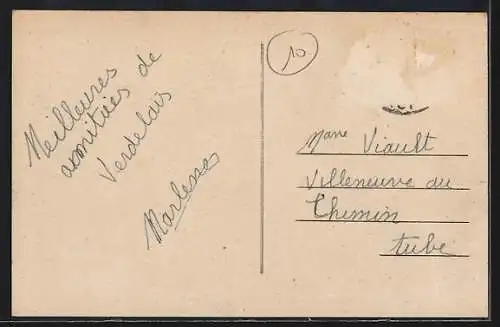 Meilleures
amitiées de
Verdelais
10
Mme Viault
Villeneuve du
Chemin
Aube